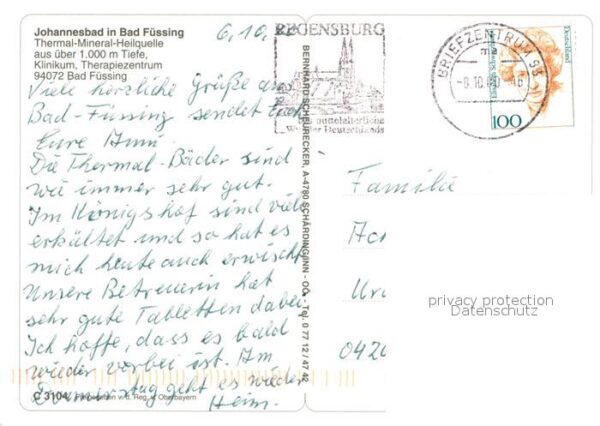 Johannesbad in Bad Füssing
Thermal-Mineral-Heilquelle
aus über 1.000 m Tiefe,
Klinikum, Therapiezentrum
94072 Bad Füssing
6.10.
Viele herzliche Grüße aus
Bad-Füssing sendet Euch
Eure Anni.
Die Thermal-Bäder sind
wie immer sehr gut.
Im Königshof sind viele
erkältet und so hat es
mich heute auch erwischt
Unsere Betreuerin hat
sehr gute Tabletten dabei
Ich hoffe, dass es bald
wieder vorbei ist. Am
Donnerstag geht es wieder
Heim.
C 3104
v. d. Reg. v. Oberbayern
BERNHARD SCHEURECKER, A-4780 SCHÄRDING/INN - OÖ. - Tel. 0 77 12 / 47 42
REGENSBURG
mittelalterliche
Deutschlands
BRIEFZENTRUM 93
ma
Deutschland
100
Familie
Ac
Ur
042
privacy protection
Datenschutz